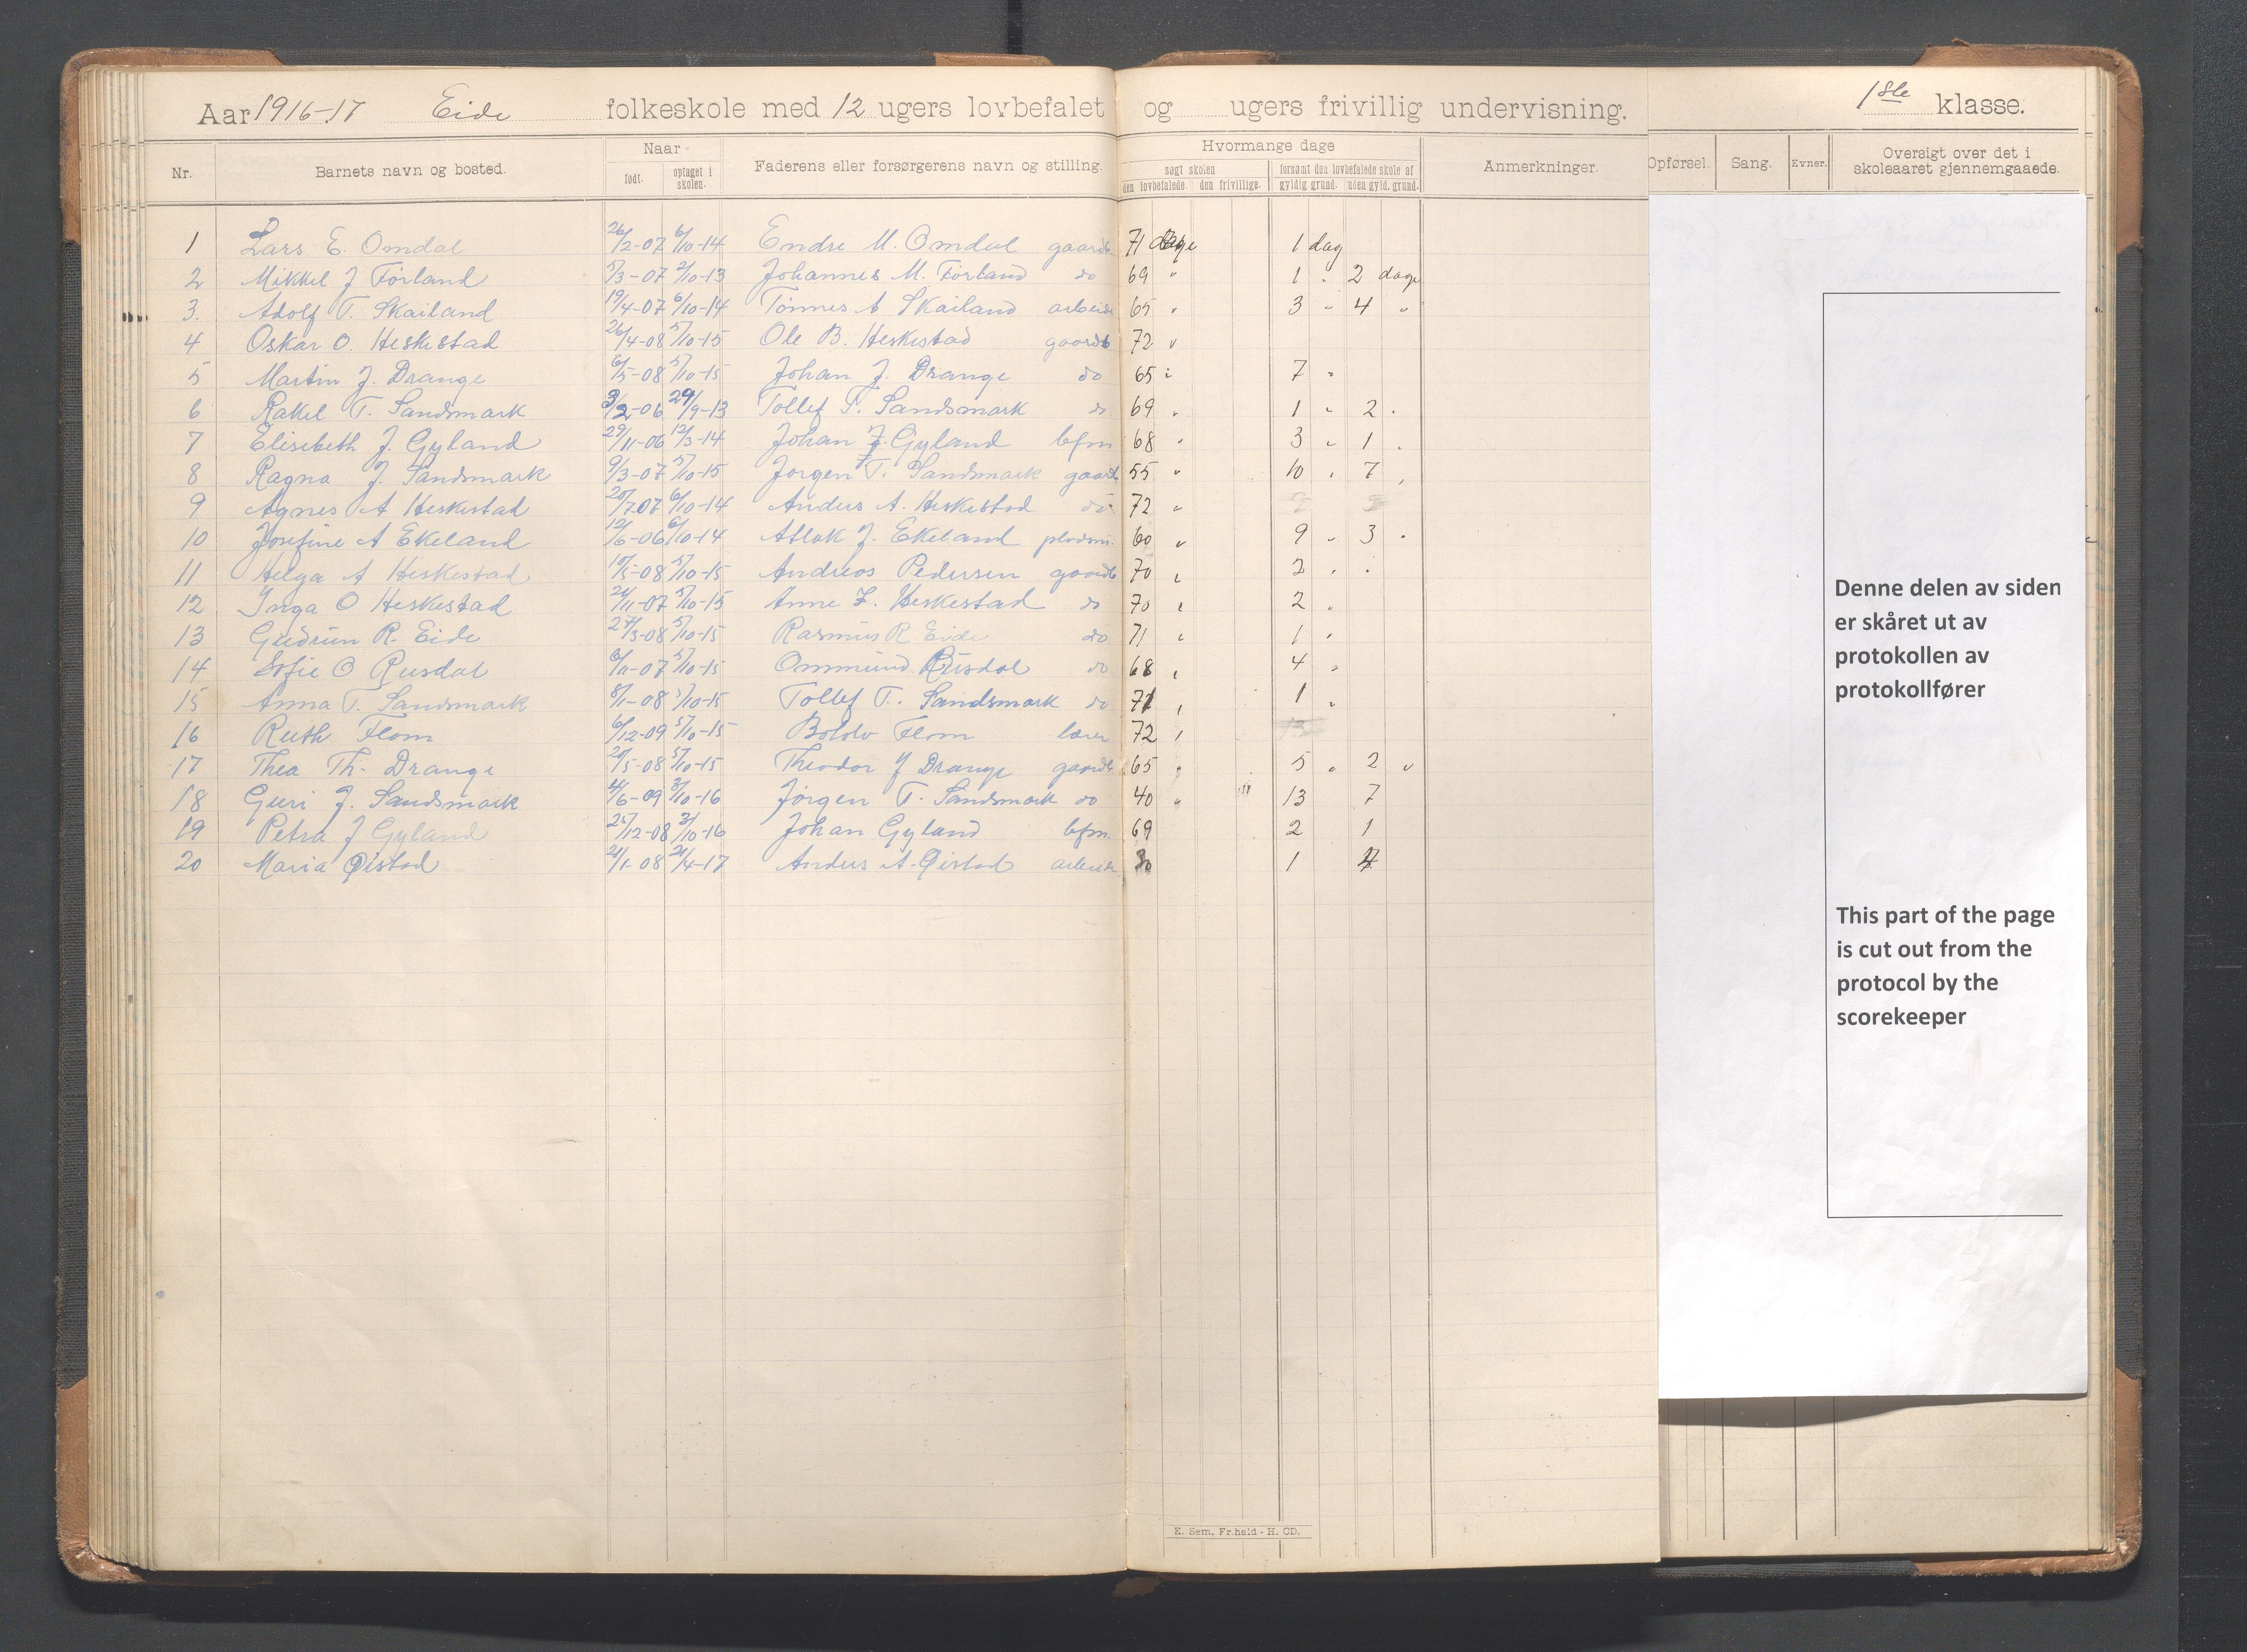 Aar 1916-17 Eide folkeskole med 12 ugers lovbefalet og ugers frivillig undervisning. 1ste klasse.
Nr. Barnets navn og bosted. Naar født. optaget i skolen. Faderens eller forsørgerens navn og stilling. Hvormange dage søgt skolen den lovbefalede. den frivillige. forsømt den lovbefalede skole af gyldig grund. uden gyld. grund. Anmerkninger. Opførsel. Sang. Evner. Oversigt over det i skoleaaret gjennemgaaede.
1 Lars E. Omdal 26/2-07 6/10-14 Endre M. Omdal gaardb. 71 dage 1 dag
2 Mikkel J Førland 5/3-07 2/10-13 Johannes M. Førland do 69 " 1 " 2 dage
3. Adolf T. Skailand 19/4-07 6/10-14 Tønnes A Skailand arbeid 65 " 3 " 4 "
4 Oskar O. Heskestad 26/4-08 5/10-15 Ole B. Heskestad gaardb 72 "
5 Martin J. Drange 6/5-08 5/10-15 Johan J. Drange do 65 " 7 "
6 Rakel T. Sandsmark 3/2-06 29/9-13 Tollef T. Sandsmark do 69 " 1 " 2 "
7 Elisebeth J. Gyland 29/11-06 12/3-14 Johan J. Gyland bfm 68 " 3 " 1 "
8 Ragna J. Sandsmark 9/3-07 5/10-15 Jørgen T. Sandsmark gaardb 55 " 10 " 7 "
9 Agnes A Heskestad 20/7-07 6/10-14 Anders A. Heskestad do 72 "
10 Josefine A Ekeland 12/6-06 6/10-14 Atlak J. Ekeland pladsm. 60 " 9 " 3 "
11 Helga A Heskestad 10/5-08 5/10-15 Andreas Pedersen gaardb 70 " 2 " "
12 Inga O Heskestad 21/11-07 5/10-15 Anne L. Heskestad do 70 " 2 "
13 Gudrun R. Eide 27/3-08 5/10-15 Rasmus R Eide do 71 " 1 "
14 Sofie O Rusdal 6/11-07 5/10-15 Ommund Rusdal do 68 " 4 "
15 Anna T. Sandsmark 8/1-08 5/10-15 Tollef T. Sandsmark do 71 " 1 "
16 Ruth Flom 6/12-09 5/10-15 Flom lærer 72 "
17 Thea Th. Drange 20/5-08 5/10-15 Theodor J Drange gaardb. 65 " 5 " 2 "
18 Guri J. Sandsmark 4/6-09 3/10-16 Jørgen T. Sandsmark do 40 " 13 7
19 Petra J Gyland 25/12-08 3/10-16 Johan Gyland bfm. 69 2 1
20 Maria Øistad 21/1-08 21/4-17 Anders A. Øistad arbeid. 30 1
E. Sem, Fr.hald - H. CD.
Denne delen av siden
er skåret ut av
protokollen av
protokollfører
This part of the page
is cut out from the
protocol by the
scorekeeper